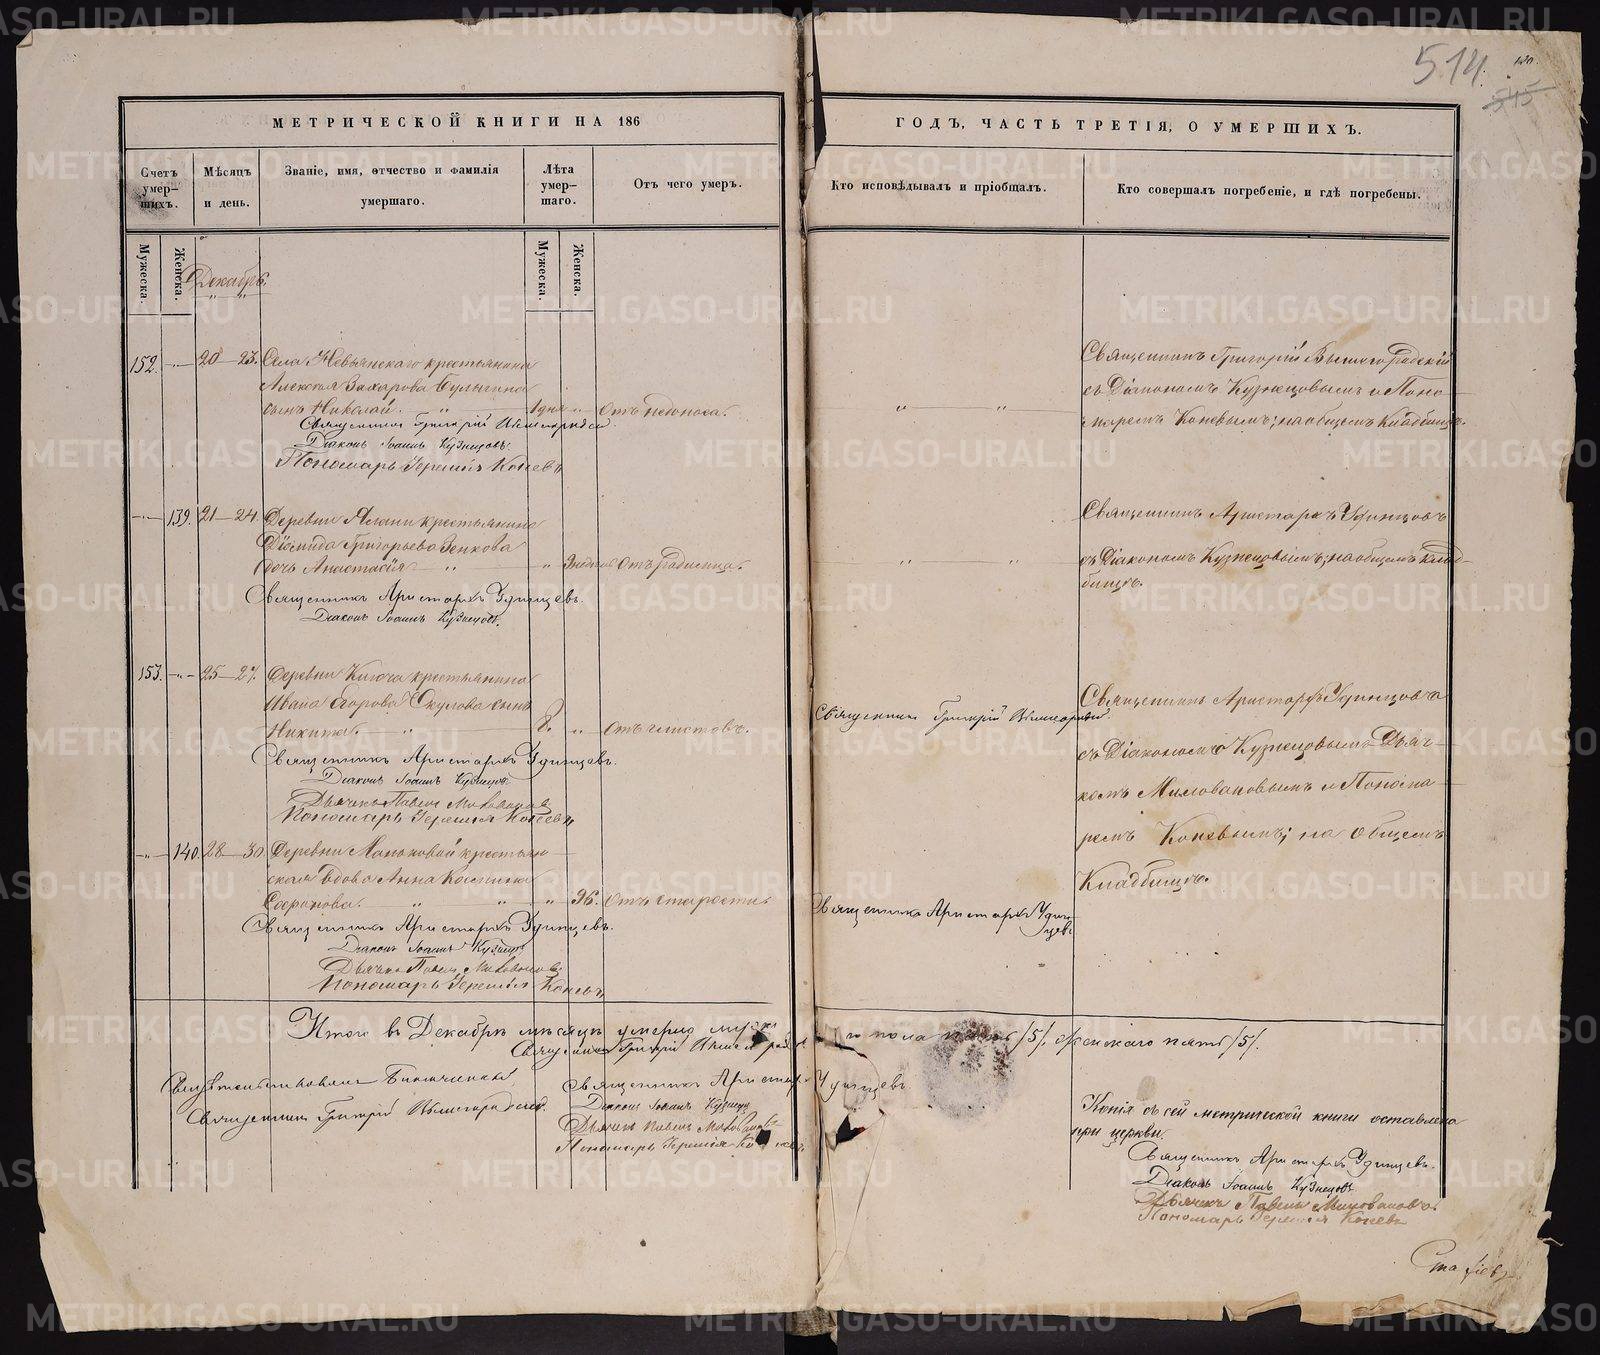 514.
545
МЕТРИЧЕСКОЙ КНИГИ НА 186
ГОДЪ, ЧАСТЬ ТРЕТІЯ, О УМЕРШИХЪ.
Счетъ умер-шихъ.
Мѣсяцъ и день.
Званіе, имя, отчество и фамилія умершаго.
Лѣта умер-шаго.
Отъ чего умеръ.
Кто исповѣдывалъ и пріобщалъ.
Кто совершалъ погребеніе, и гдѣ погребены.
Мужеска.
Женска.
Мужеска.
Женска.
Декабрь.
152. 20—23. Села Невьянскаго крестьянина
Алексѣя Захарова Булыгина
сынъ Николай. 1 дня Отъ недоноса.
Священникъ Григорій
Діаконъ Іоаннъ Кузнецовъ
Пономарь Іеремія Коневъ
Священникъ Григорій
съ Діакономъ Кузнецовымъ и Поно-
маремъ Коневымъ; на общемъ Кладбищѣ.
139. 21—24. Деревни Ялани крестьянина
Діомида Григорьева Зенкова
дочь Анастасія Отъ родимца.
Священникъ Аристархъ Удинцевъ.
Діаконъ Іоаннъ Кузнецовъ.
Священникъ Аристархъ Удинцовъ
съ Діакономъ Кузнецовымъ; на общемъ клад-
бищѣ.
153. 25—27. Деревни Ключа крестьянина
Ивана Егорова Окулова сынъ
Никита. 8. Отъ глистовъ.
Священникъ Аристархъ Удинцевъ.
Діаконъ Іоаннъ Кузнецовъ
Дьячекъ Павелъ Миловановъ
Пономарь Іеремія Коневъ
Священникъ Григорій
Священникъ Аристархъ Удинцовъ
съ Діакономъ Кузнецовымъ Дьяч-
комъ Миловановымъ и Понома-
ремъ Коневымъ; на общемъ
Кладбищѣ.
140. 28—30. Деревни Маньковой крестьян-
ская вдова Анна Козмина
Сафонова. 96. Отъ старости.
Священникъ Аристархъ Удинцевъ.
Діаконъ Іоаннъ Кузнецовъ
Дьячекъ Павелъ Миловановъ
Пономарь Іеремія Коневъ
Священникъ Аристархъ Удин-
цевъ
Итого въ Декабрѣ мѣсяцѣ умерло мужска-
го пола пять /5/, Женскаго пять /5/.
Священникъ Григорій
Священникъ Аристархъ Удинцевъ
Діаконъ Іоаннъ Кузнецовъ
Дьячекъ Павелъ Миловановъ
Пономарь Іеремія Коневъ
Свидѣтельствовалъ Благочинный
Священникъ Григорій
Копія съ сей метрической книги оставлена
при церкви.
Священникъ Аристархъ Удинцевъ.
Діаконъ Іоаннъ Кузнецовъ
Дьячекъ Павелъ Миловановъ.
Пономарь Іеремія Коневъ
METRIKI.GASO-URAL.RU